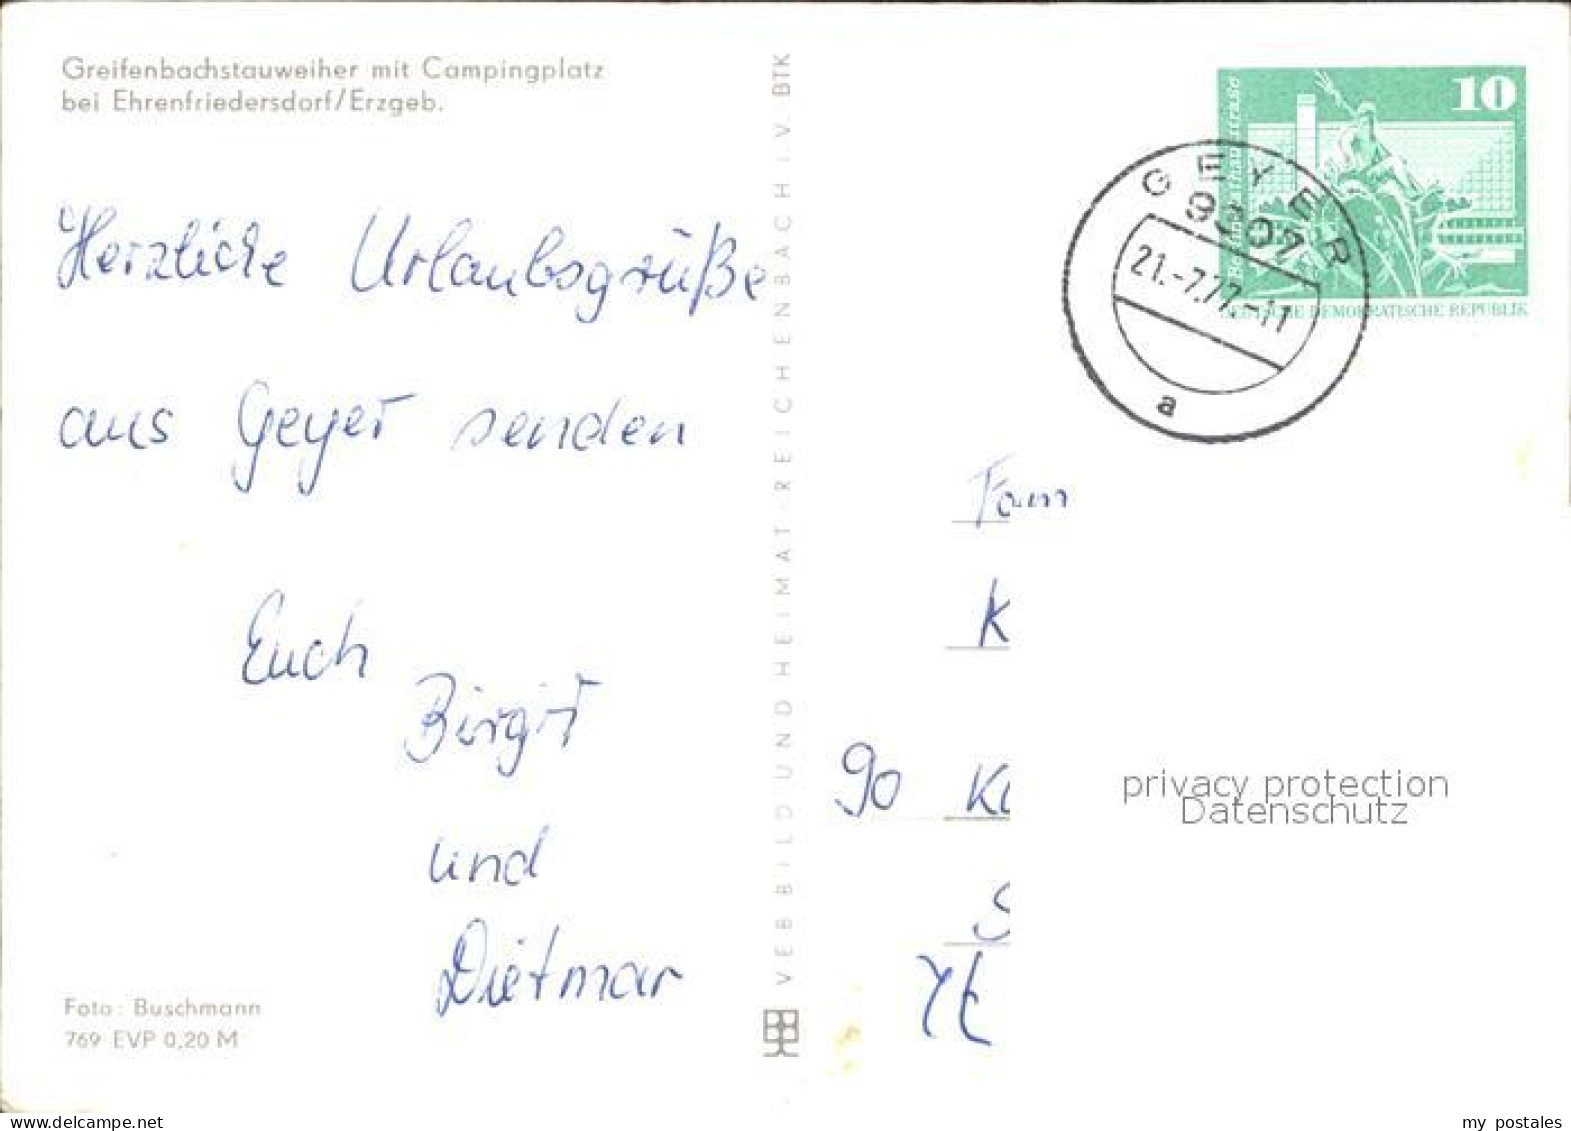 Greifenbachstauweiher mit Campingplatz
bei Ehrenfriedersdorf/Erzgeb.
Herzliche Urlaubsgrüße
aus Geyer senden
Euch
Birgit
und
Dietmar
Foto: Buschmann
769 EVP 0,20 M
VEB BILD UND HEIMAT · REICHENBACH I V BTK
10
DEUTSCHE DEMOKRATISCHE REPUBLIK
GEYER
9307
21.-7.77.-11
a
Fam
K
90 K
S
privacy protection
Datenschutz
my postales